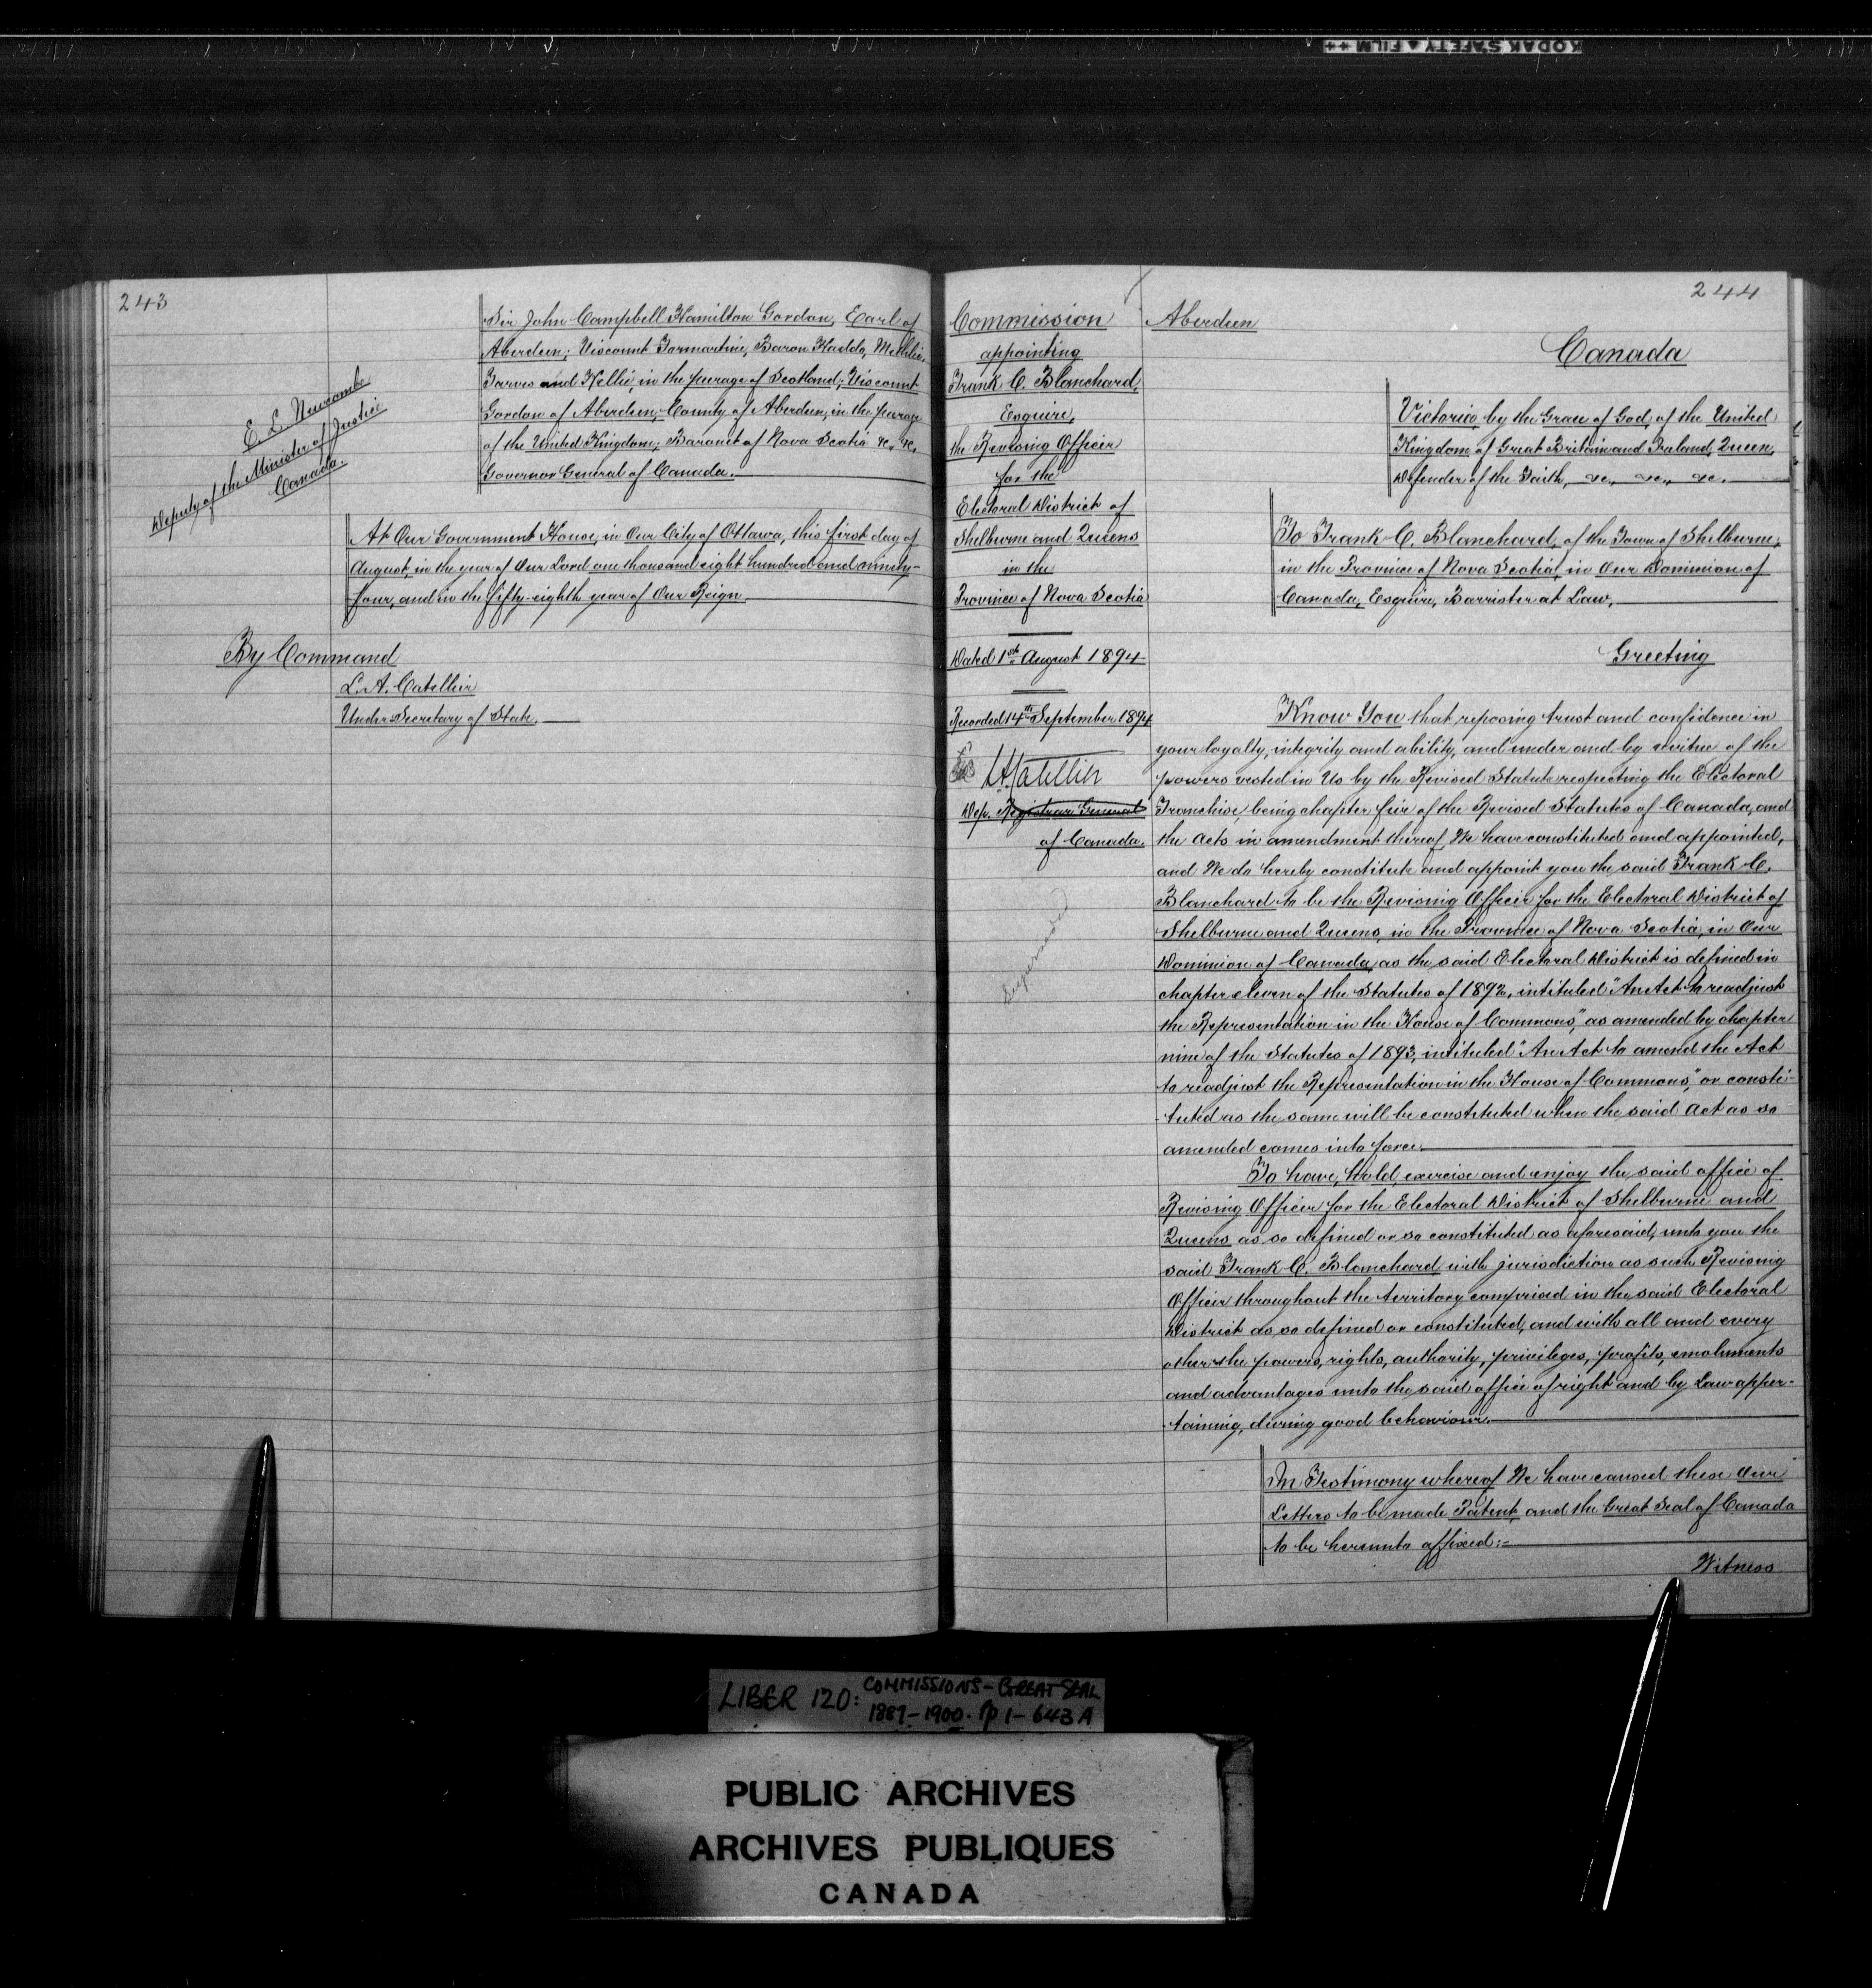 KODAK SAFETY ▲ FILM ++
243
Sir John Campbell Hamilton Gordon, Earl of
Aberdeen; Viscount Formartine, Baron Haddo, Methlic,
Tarves and Kellie, in the peerage of Scotland; Viscount
Gordon of Aberdeen, County of Aberdeen, in the peerage
of the United Kingdom; Baronet of Nova Scotia &c, &c,
Governor General of Canada.
E. L. Newcombe
Deputy of the Minister of Justice
Canada.
At Our Government House, in Our City of Ottawa, this first day of
August, in the year of Our Lord one thousand eight hundred and ninety-
four, and in the fifty-eighth year of Our Reign
By Command
L. A. Catellier
Under Secretary of State.
244
Commission
appointing
Frank C. Blanchard,
Esquire,
the Revising Officer
for the
Electoral District of
Shelburne and Queens
in the
Province of Nova Scotia
Dated 1st August 1894
Recorded 14th September 1894
L.A. Catellier
Dep. Registrar General
of Canada.
Superseded
Aberdeen
Canada
Victoria, by the Grace of God, of the United
Kingdom of Great Britain and Ireland, Queen,
Defender of the Faith, &c., &c., &c.
To Frank C. Blanchard, of the Town of Shelburne,
in the Province of Nova Scotia, in Our Dominion of
Canada, Esquire, Barrister at Law,
Greeting
Know You that reposing trust and confidence in
your loyalty, integrity and ability, and under and by virtue of the
powers vested in Us by the Revised Statute respecting the Electoral
Franchise, being chapter five of the Revised Statutes of Canada, and
the Acts in amendment thereof, We have constituted and appointed,
and We do hereby constitute and appoint you the said Frank C.
Blanchard to be the Revising Officer for the Electoral District of
Shelburne and Queens, in the Province of Nova Scotia, in Our
Dominion of Canada, as the said Electoral District is defined in
chapter eleven of the Statutes of 1892, intituled "An Act to readjust
the Representation in the House of Commons," as amended by chapter
nine of the Statutes of 1893, intituled "An Act to amend the Act
to readjust the Representation in the House of Commons," or consti-
-tuted as the same will be constituted when the said Act as so
amended comes into force.
To have, hold, exercise and enjoy the said office of
Revising Officer for the Electoral District of Shelburne and
Queens as so defined or so constituted as aforesaid, unto you the
said Frank C. Blanchard with jurisdiction as such Revising
Officer throughout the territory comprised in the said Electoral
District as so defined or constituted, and with all and every
other the powers, rights, authority, privileges, profits, emoluments
and advantages unto the said office of right and by Law apper-
-taining, during good behaviour.
In Testimony whereof We have caused these Our
Letters to be made Patent, and the Great Seal of Canada
to be hereunto affixed:-
Witness
LIBER 120: COMMISSIONS - GREAT SEAL
1889-1900. Pp 1-643A
PUBLIC ARCHIVES
ARCHIVES PUBLIQUES
CANADA